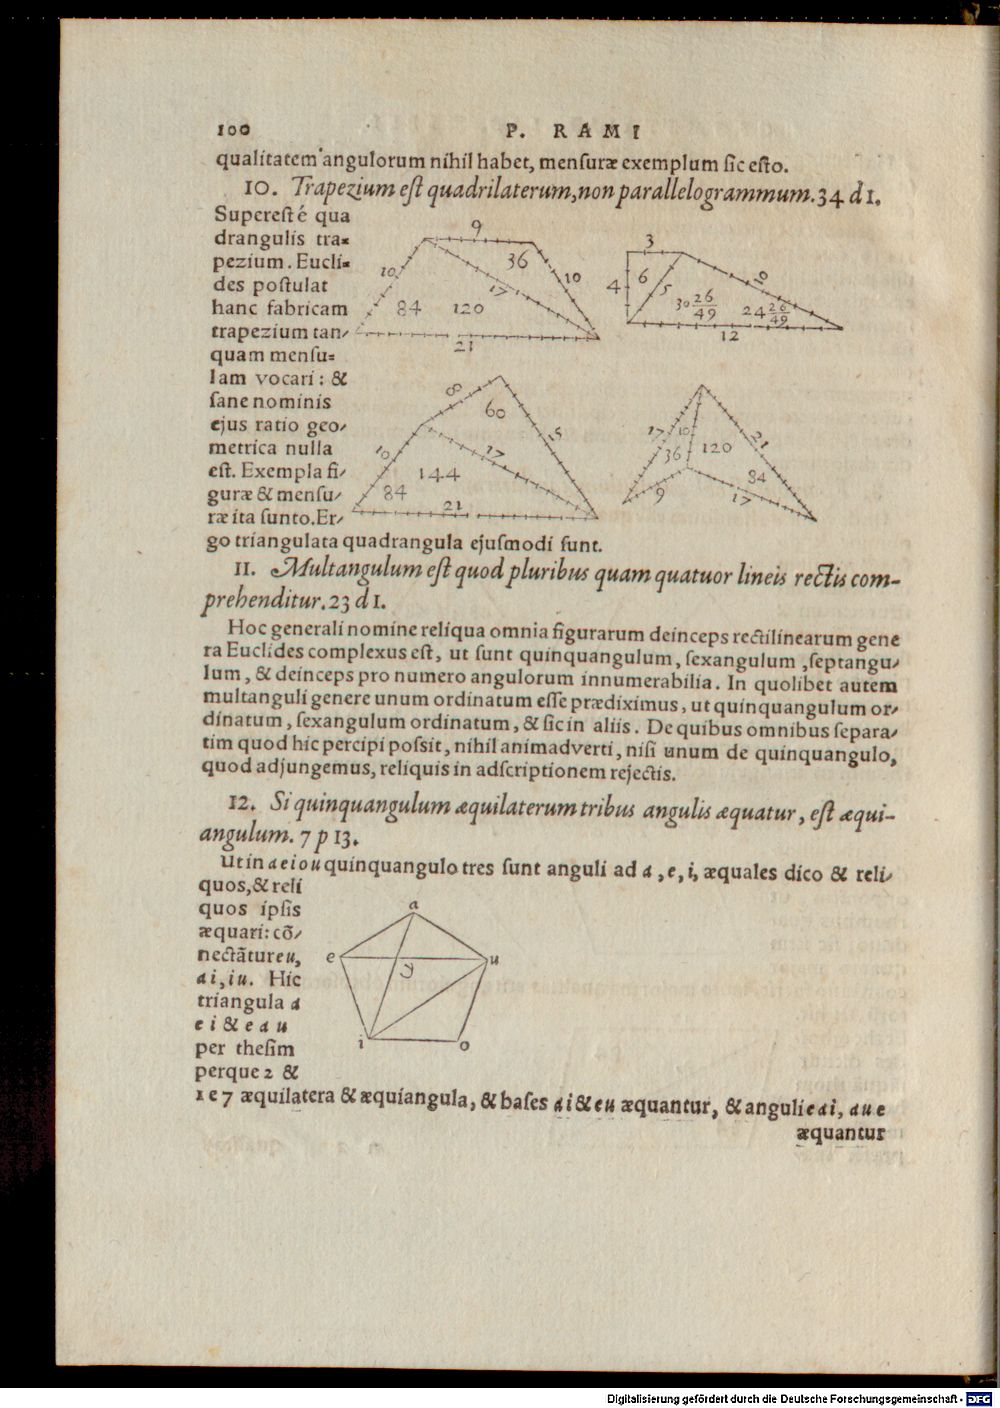 100 P. RAMI
qualitatem angulorum nihil habet, mensuræ exemplum sic esto.
10. Trapezium est quadrilaterum, non parallelogrammum. 34 d 1.
Superest é qua
drangulis tra=
pezium. Eucli=
des postulat
hanc fabricam
trapezium tan/
quam mensu=
lam vocari: &
sane nominis
ejus ratio geo/
metrica nulla
est. Exempla fi/
guræ & mensu/
ræ ita sunto. Er/
go triangulata quadrangula ejusmodi sunt.
9
10
36
10
17
84
120
21
3
4
6
5
10
30 26/49
24 26/49
12
8
60
15
10
17
144
84
21
17
10
21
36
120
9
84
17
11. Multangulum est quod pluribus quam quatuor lineis rectis com-
prehenditur. 23 d 1.
Hoc generali nomine reliqua omnia figurarum deinceps rectilinearum gene
ra Euclides complexus est, ut sunt quinquangulum, sexangulum, septangu/
lum, & deinceps pro numero angulorum innumerabilia. In quolibet autem
multanguli genere unum ordinatum esse prædiximus, ut quinquangulum or/
dinatum, sexangulum ordinatum, & sic in aliis. De quibus omnibus separa/
tim quod hic percipi possit, nihil animadverti, nisi unum de quinquangulo,
quod adjungemus, reliquis in adscriptionem rejectis.
12. Si quinquangulum æquilaterum tribus angulis æquatur, est æqui-
angulum. 7 p 13.
Ut in aeiou quinquangulo tres sunt anguli ad a, e, i, æquales dico & reli/
quos, & reli
quos ipsis
æquari: cõ/
nectãtur eu,
ai, iu. Hic
triangula a
e i & e a u
per thesim
perque 2 &
1 e 7 æquilatera & æquiangula, & bases ai & eu æquantur, & anguli eai, aue
æquantur
a
e
y
u
i
o
Digitalisierung gefördert durch die Deutsche Forschungsgemeinschaft - DFG